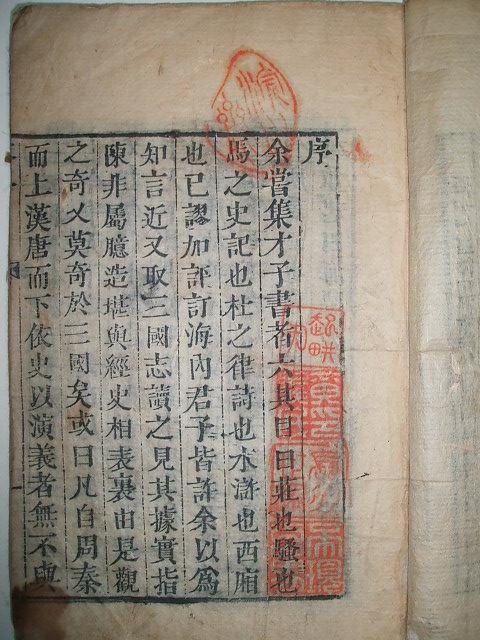 序
余嘗集才子書者六其目曰莊也騷也
馬之史記也杜之律詩也水滸也西廂
也已謬加評訂海內君子皆許余以為
知言近又取三國志讀之見其據實指
陳非屬臆造堪與經史相表裏由是觀
之奇又莫奇於三國矣或曰凡自周秦
而上漢唐而下依史以演義者無不與